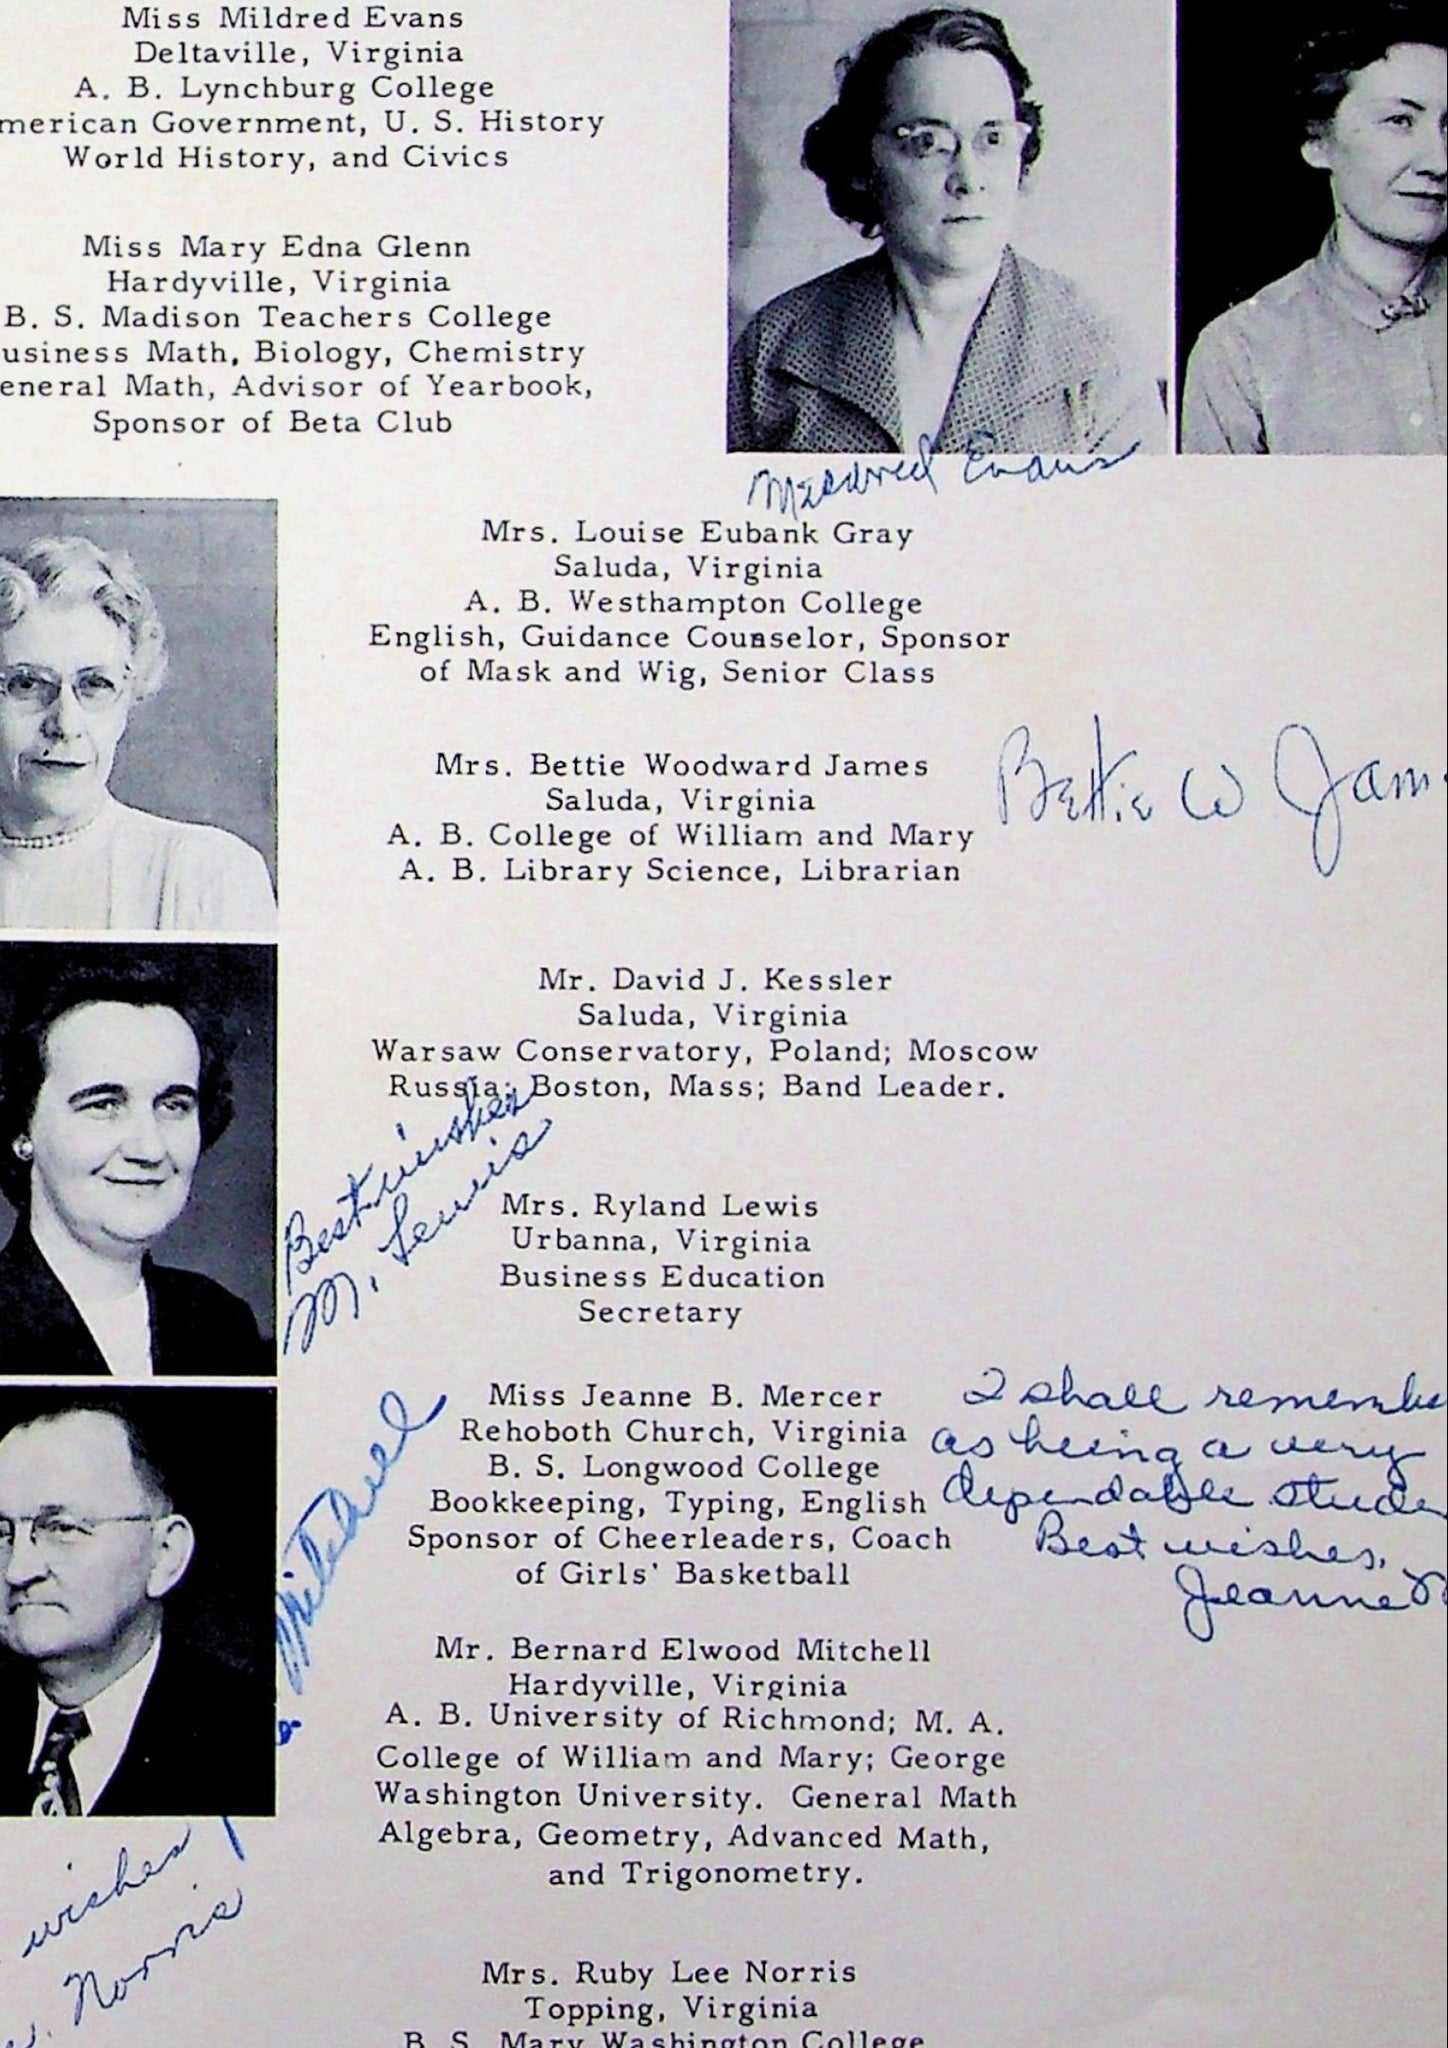 Miss Mildred Evans
Deltaville, Virginia
A. B. Lynchburg College
merican Government, U. S. History
World History, and Civics
Miss Mary Edna Glenn
Hardyville, Virginia
B. S. Madison Teachers College
usiness Math, Biology, Chemistry
eneral Math, Advisor of Yearbook,
Sponsor of Beta Club
Mildred Evans
Mrs. Louise Eubank Gray
Saluda, Virginia
A. B. Westhampton College
English, Guidance Counselor, Sponsor
of Mask and Wig, Senior Class
Mrs. Bettie Woodward James
Saluda, Virginia
A. B. College of William and Mary
A. B. Library Science, Librarian
Bettie W Jam
Mr. David J. Kessler
Saluda, Virginia
Warsaw Conservatory, Poland; Moscow
Russia; Boston, Mass; Band Leader.
Best wishes
M. Lewis
Mrs. Ryland Lewis
Urbanna, Virginia
Business Education
Secretary
Miss Jeanne B. Mercer
Rehoboth Church, Virginia
B. S. Longwood College
Bookkeeping, Typing, English
Sponsor of Cheerleaders, Coach
of Girls' Basketball
I shall remembe
as being a very
dependable stude
Best wishes,
Jeanne
Mitchell
Mr. Bernard Elwood Mitchell
Hardyville, Virginia
A. B. University of Richmond; M. A.
College of William and Mary; George
Washington University. General Math
Algebra, Geometry, Advanced Math,
and Trigonometry.
wishes
Norris
Mrs. Ruby Lee Norris
Topping, Virginia
B. S. Mary Washington College